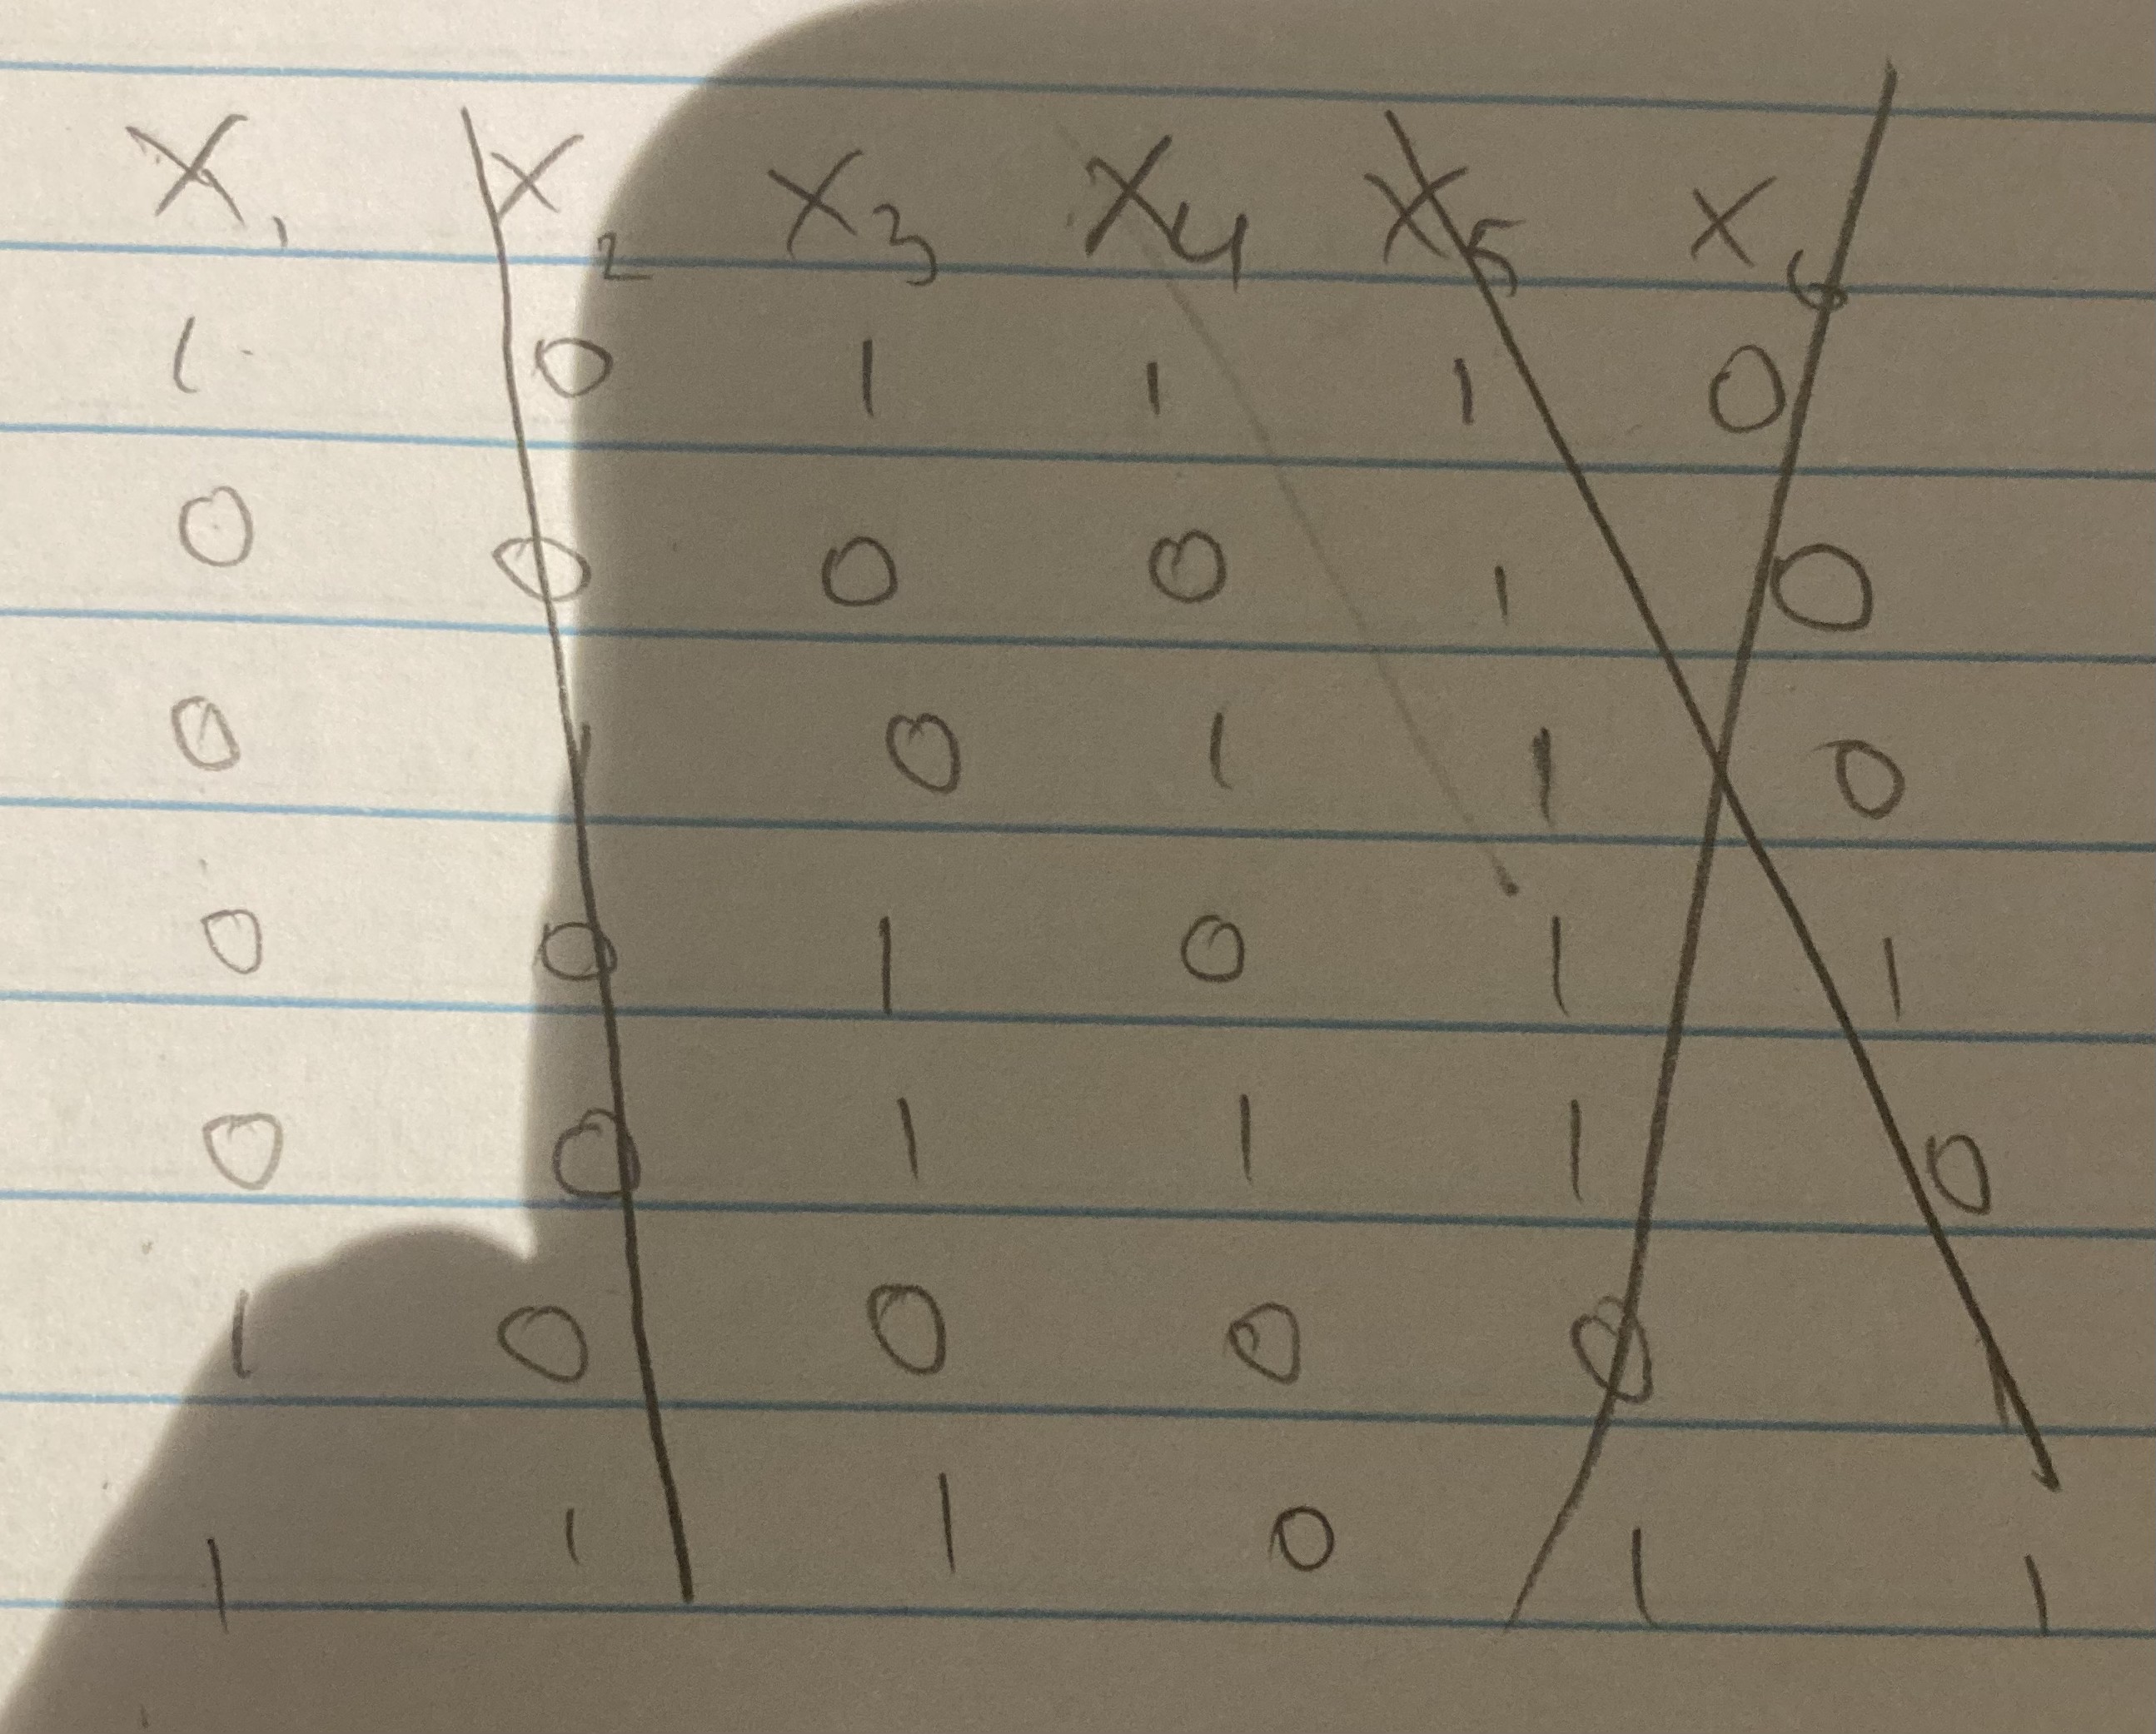 X1 X2 X3 X4 X5 X6
1 0 1 1 1 0
0 0 0 0 1 0
0 1 0 1 1 0
0 0 1 0 1 1
0 0 1 1 1 0
1 0 0 0 0 1
1 1 1 0 1 1